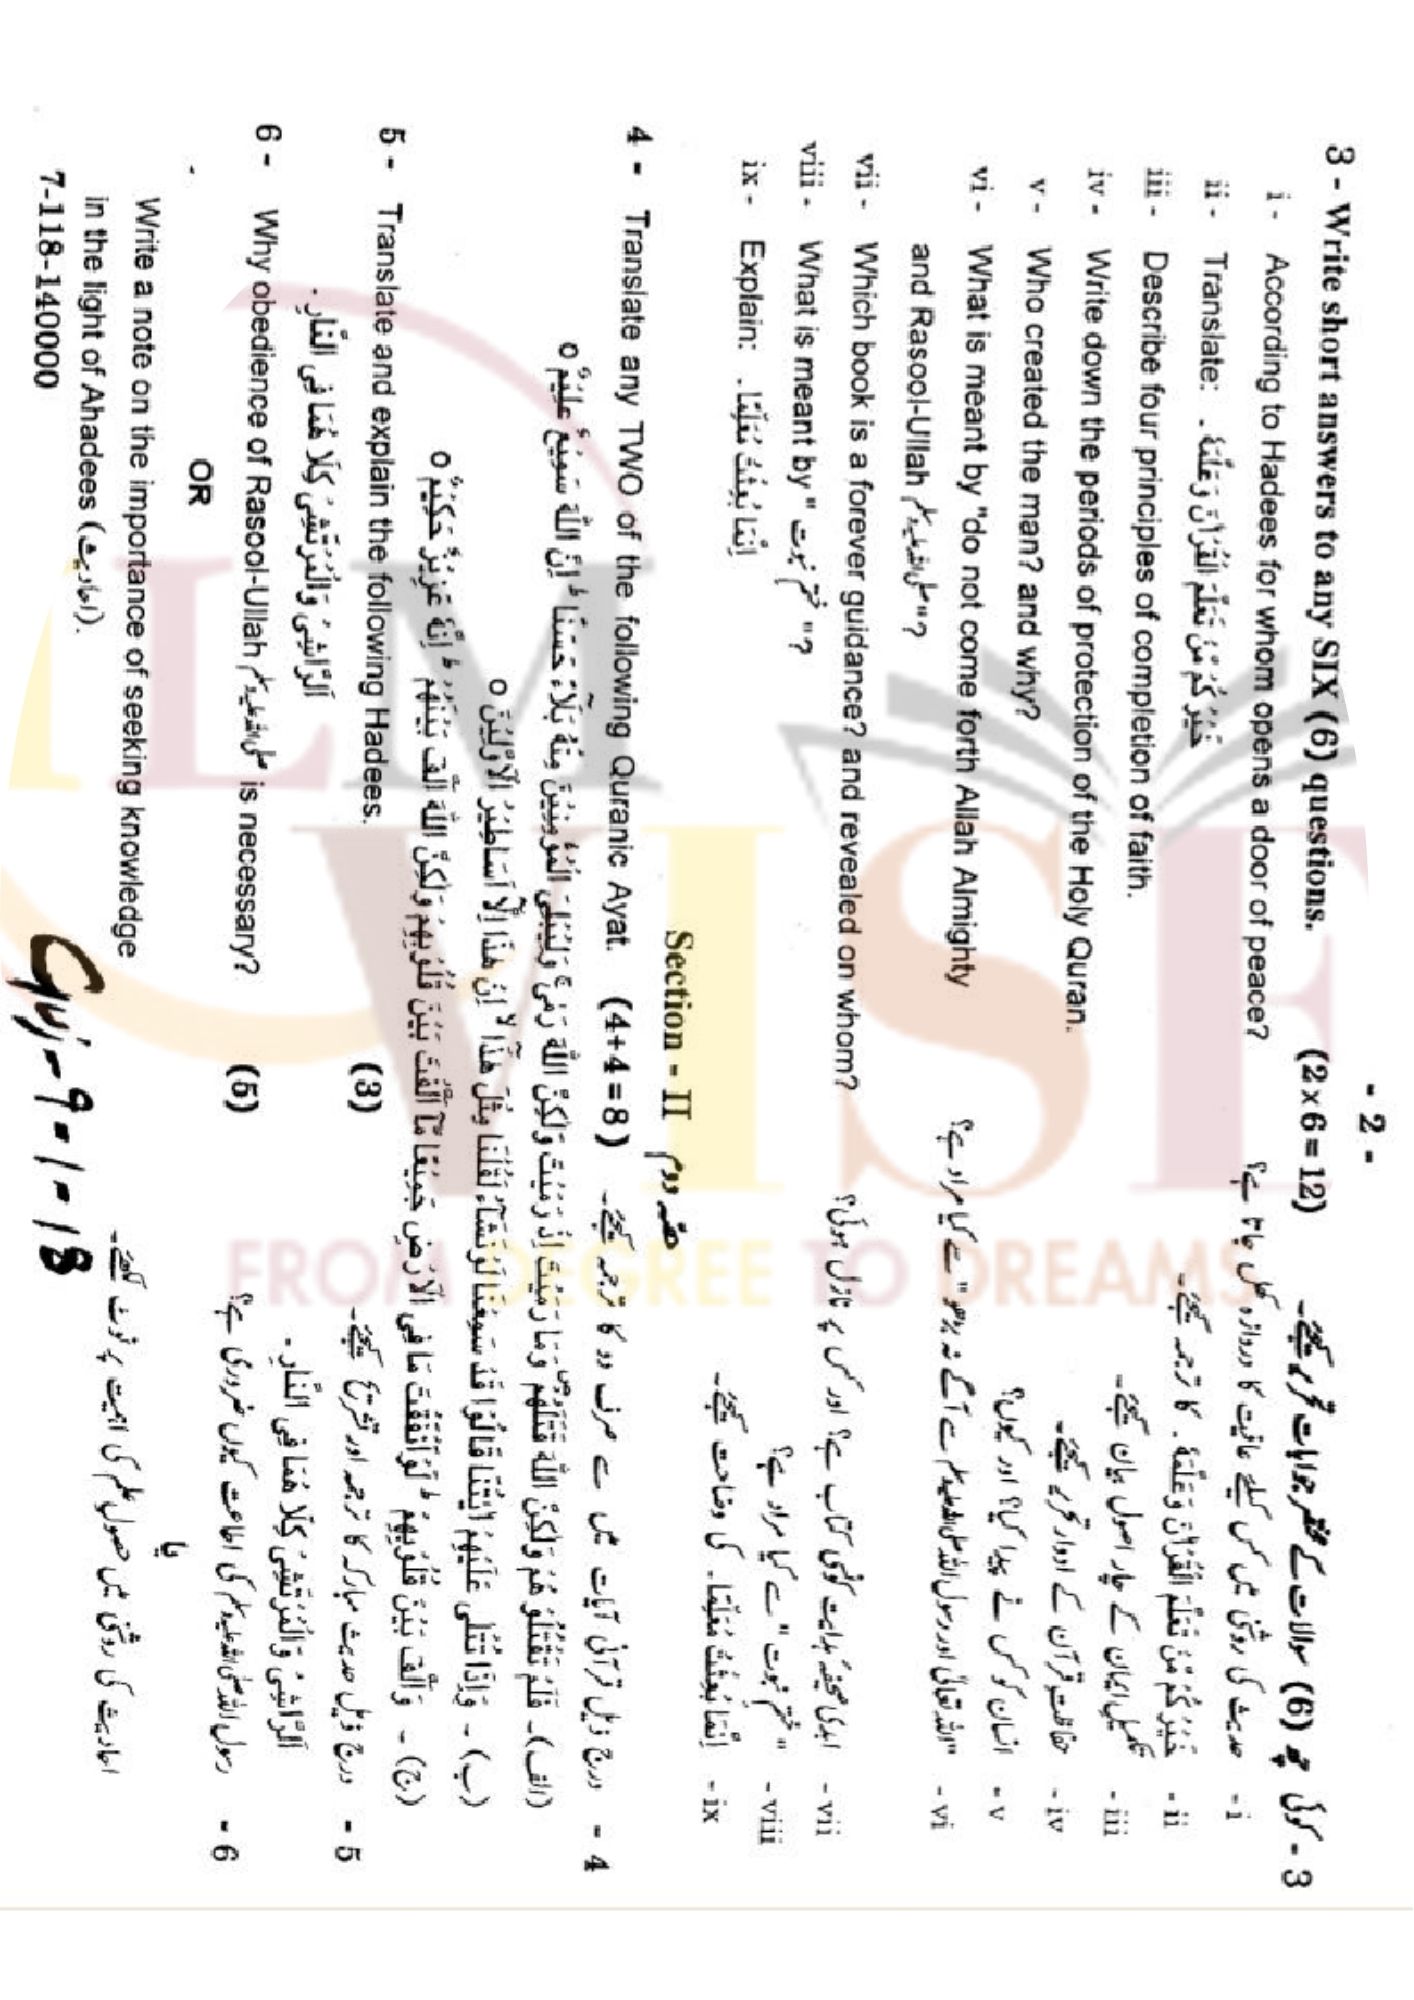 - 2 -
3 - Write short answers to any SIX (6) questions. (2x6=12) 3 - کوئی چھ (6) سوالات کے مختصر جوابات تحریر کیجئے۔
i - According to Hadees for whom opens a door of peace? i - حدیث کی روشنی میں کس کیلئے عافیت کا دروازہ کھل جاتا ہے؟
ii - Translate: خَيْرُكُمْ مَنْ تَعَلَّمَ الْقُرْاٰنَ وَعَلَّمَهٗ - ii - خَيْرُكُمْ مَنْ تَعَلَّمَ الْقُرْاٰنَ وَعَلَّمَهٗ - کا ترجمہ کیجئے۔
iii - Describe four principles of completion of faith. iii - تکمیل ایمان کے چار اصول بیان کیجئے۔
iv - Write down the periods of protection of the Holy Quran. iv - حفاظتِ قرآن کے ادوار تحریر کیجئے۔
v - Who created the man? and why? v - انسان کو کس نے پیدا کیا؟ اور کیوں؟
vi - What is meant by "do not come forth Allah Almighty vi - "اللہ تعالیٰ اور رسول اللہ صلی اللہ علیہ وسلم سے آگے نہ بڑھو" سے کیا مراد ہے؟
and Rasool-Ullah صلی اللہ علیہ وسلم"?
vii - Which book is a forever guidance? and revealed on whom? vii - ابدی صحیفہ ہدایت کونسی کتاب ہے؟ اور کس پر نازل ہوئی؟
viii - What is meant by "ختم نبوت"? viii - "ختم نبوت" سے کیا مراد ہے؟
ix - Explain: اِنَّمَا بُعِثْتُ مُعَلِّمًا - ix - اِنَّمَا بُعِثْتُ مُعَلِّمًا - کی وضاحت کیجئے۔
Section - II حصہ دوم
4 - Translate any TWO of the following Quranic Ayat. (4+4=8) 4 - درج ذیل قرآنی آیات میں سے صرف دو کا ترجمہ کیجئے۔
(الف)- فَلَمْ تَقْتُلُوْهُمْ وَلٰكِنَّ اللّٰهَ قَتَلَهُمْ وَمَا رَمَيْتَ اِذْ رَمَيْتَ وَلٰكِنَّ اللّٰهَ رَمٰى ۚ وَلِيُبْلِيَ الْمُؤْمِنِيْنَ مِنْهُ بَلَآءً حَسَنًا ؕ اِنَّ اللّٰهَ سَمِيْعٌ عَلِيْمٌ o
(ب)- وَاِذَا تُتْلٰى عَلَيْهِمْ اٰيٰتُنَا قَالُوْا قَدْ سَمِعْنَا لَوْ نَشَآءُ لَقُلْنَا مِثْلَ هٰذَآ ۙ اِنْ هٰذَآ اِلَّآ اَسَاطِيْرُ الْاَوَّلِيْنَ o
(ج)- وَاَلَّفَ بَيْنَ قُلُوْبِهِمْ ؕ لَوْ اَنْفَقْتَ مَا فِي الْاَرْضِ جَمِيْعًا مَّآ اَلَّفْتَ بَيْنَ قُلُوْبِهِمْ وَلٰكِنَّ اللّٰهَ اَلَّفَ بَيْنَهُمْ ؕ اِنَّهٗ عَزِيْزٌ حَكِيْمٌ o
5 - Translate and explain the following Hadees. (3) 5 - درج ذیل حدیث مبارکہ کا ترجمہ اور تشریح کیجئے۔
اَلرَّاشِيْ وَالْمُرْتَشِيْ كِلَاهُمَا فِي النَّارِ - اَلرَّاشِيْ وَالْمُرْتَشِيْ كِلَاهُمَا فِي النَّارِ -
6 - Why obedience of Rasool-Ullah صلی اللہ علیہ وسلم is necessary? (5) 6 - رسول اللہ صلی اللہ علیہ وسلم کی اطاعت کیوں ضروری ہے؟
OR یا
Write a note on the importance of seeking knowledge احادیث کی روشنی میں حصولِ علم کی اہمیت پر نوٹ لکھئے۔
in the light of Ahadees (احادیث).
7-118-140000
Guj-9-1-18
LM
VISE
FROM DEGREE TO DREAMS